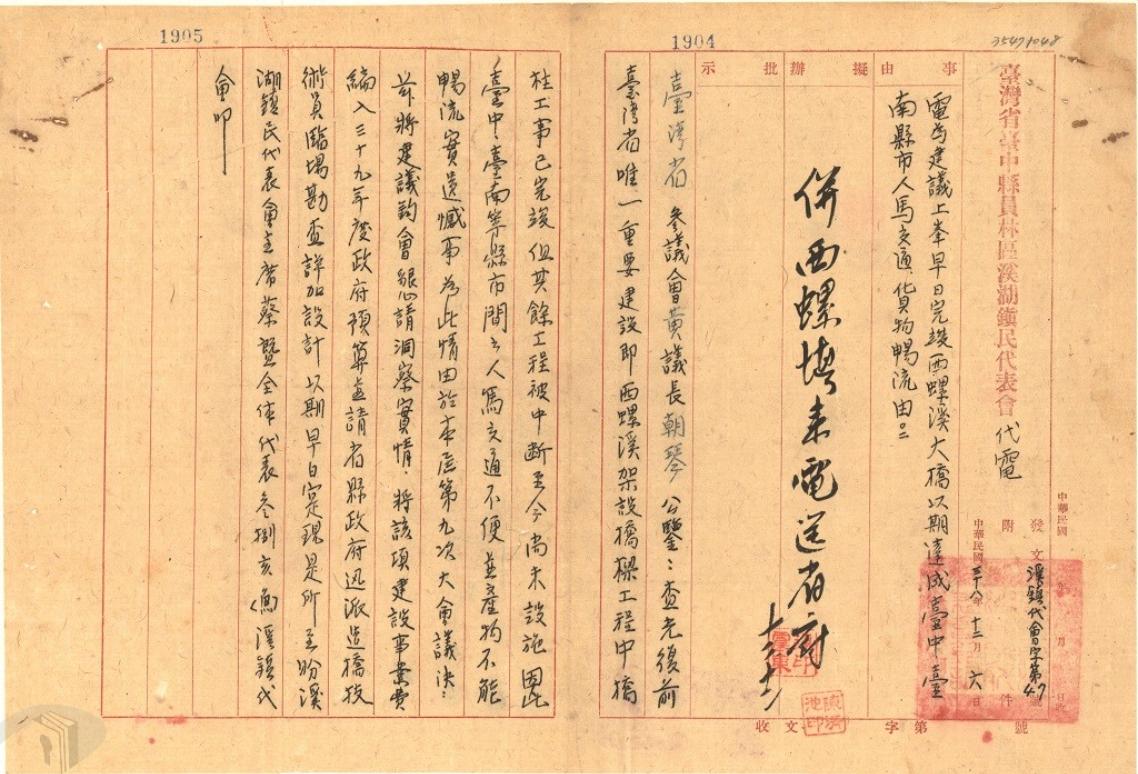 35471048
1904
1905
臺灣省臺中縣員林區溪湖鎮民代表會代電
中華民國 年 月 日收
發文溪鎮代會字第47號
附 件
中華民國三十八年十二月六日
事由
電為建議上峯早日完竣西螺溪大橋以期達成臺中臺
南縣市人馬交通貨物暢流由
擬辦
批示
併西螺 來電送省府
十二
收文 字第 號
臺灣省參議會黃議長朝琴公鑒：查光復前
臺灣省唯一重要建設即西螺溪架設橋樑工程中橋
柱工事已完竣但其餘工程被中斷至今尚未設施因此
臺中臺南等縣市間之人馬交通不便並產物不能
暢流實遺憾事為此情由於本屆第九次大會議決：
並將建議鈞會懇請洞察實情，將該項建設事業費
編入三十九年度政府預算並請省縣政府迅派造橋技
術員臨場勘查詳加設計以期早日實現是所至盼溪
湖鎮民代表會主席蔡暨全体代表叁捌亥 溪鎮代
會叩